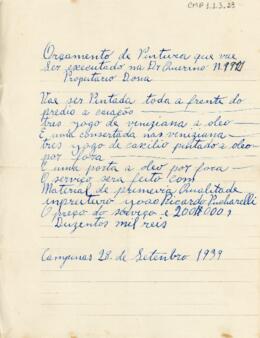 CMP 1.1.3.23
Orçamento de Pintura que vae
ser executado na Dr Querino N. 1921
Proputario Dona
Vae ser Pintada toda a frente do
predio a caiação
tres jogo de veneziana a oleo
E uma consertada nas veneziana
tres jogo de caxilio pintado a oleo
por fora
E uma porta a oleo por fora
O serviço sera feito com
Material de primeira Qualidade
João Ricardo
O preço do serviço e 200$000,
Duzentos mil reis
Campinas 28. de Setembro 1939